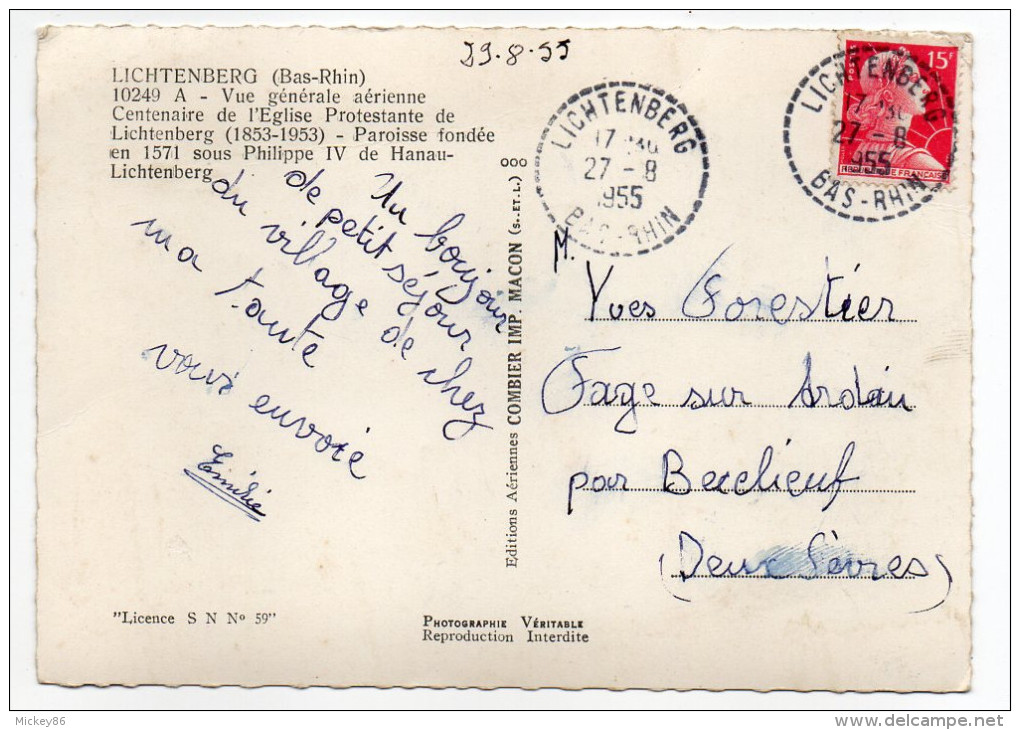 29.8.55
LICHTENBERG (Bas-Rhin)
10249 A - Vue générale aérienne
Centenaire de l'Eglise Protestante de
Lichtenberg (1853-1953) - Paroisse fondée
en 1571 sous Philippe IV de Hanau-
Lichtenberg
Un bonjour
de petit séjour
du village de chez
ma tante
vous envoie
Emilie
"Licence S N Nº 59"
PHOTOGRAPHIE VÉRITABLE
Reproduction Interdite
Editions Aériennes COMBIER IMP. MACON (S.-ET-L.) OOO
LICHTENBERG
17 30
27 - 8
1955
BAS-RHIN
LICHTENBERG
17 30
27 - 8
1955
BAS-RHIN
POSTES
15F
REPUBLIQUE FRANÇAISE
M.
Yves Forestier
Fage sur Ardain
par
(Deux Sèvres)
Mickey86
delcampe.net